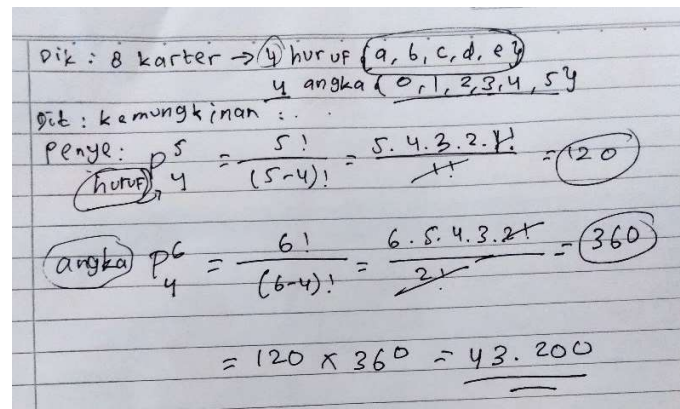 Dik : 8 karter → 4 huruf {a, b, c, d, e}
4 angka {0, 1, 2, 3, 4, 5}
Dit : kemungkinan : . .
Penye : huruf P⁵₄ = 5! / (5-4)! = 5. 4. 3. 2. 1! / 1! = 120
angka P⁶₄ = 6! / (6-4)! = 6. 5. 4. 3. 2! / 2! = 360
= 120 x 360 = 43.200